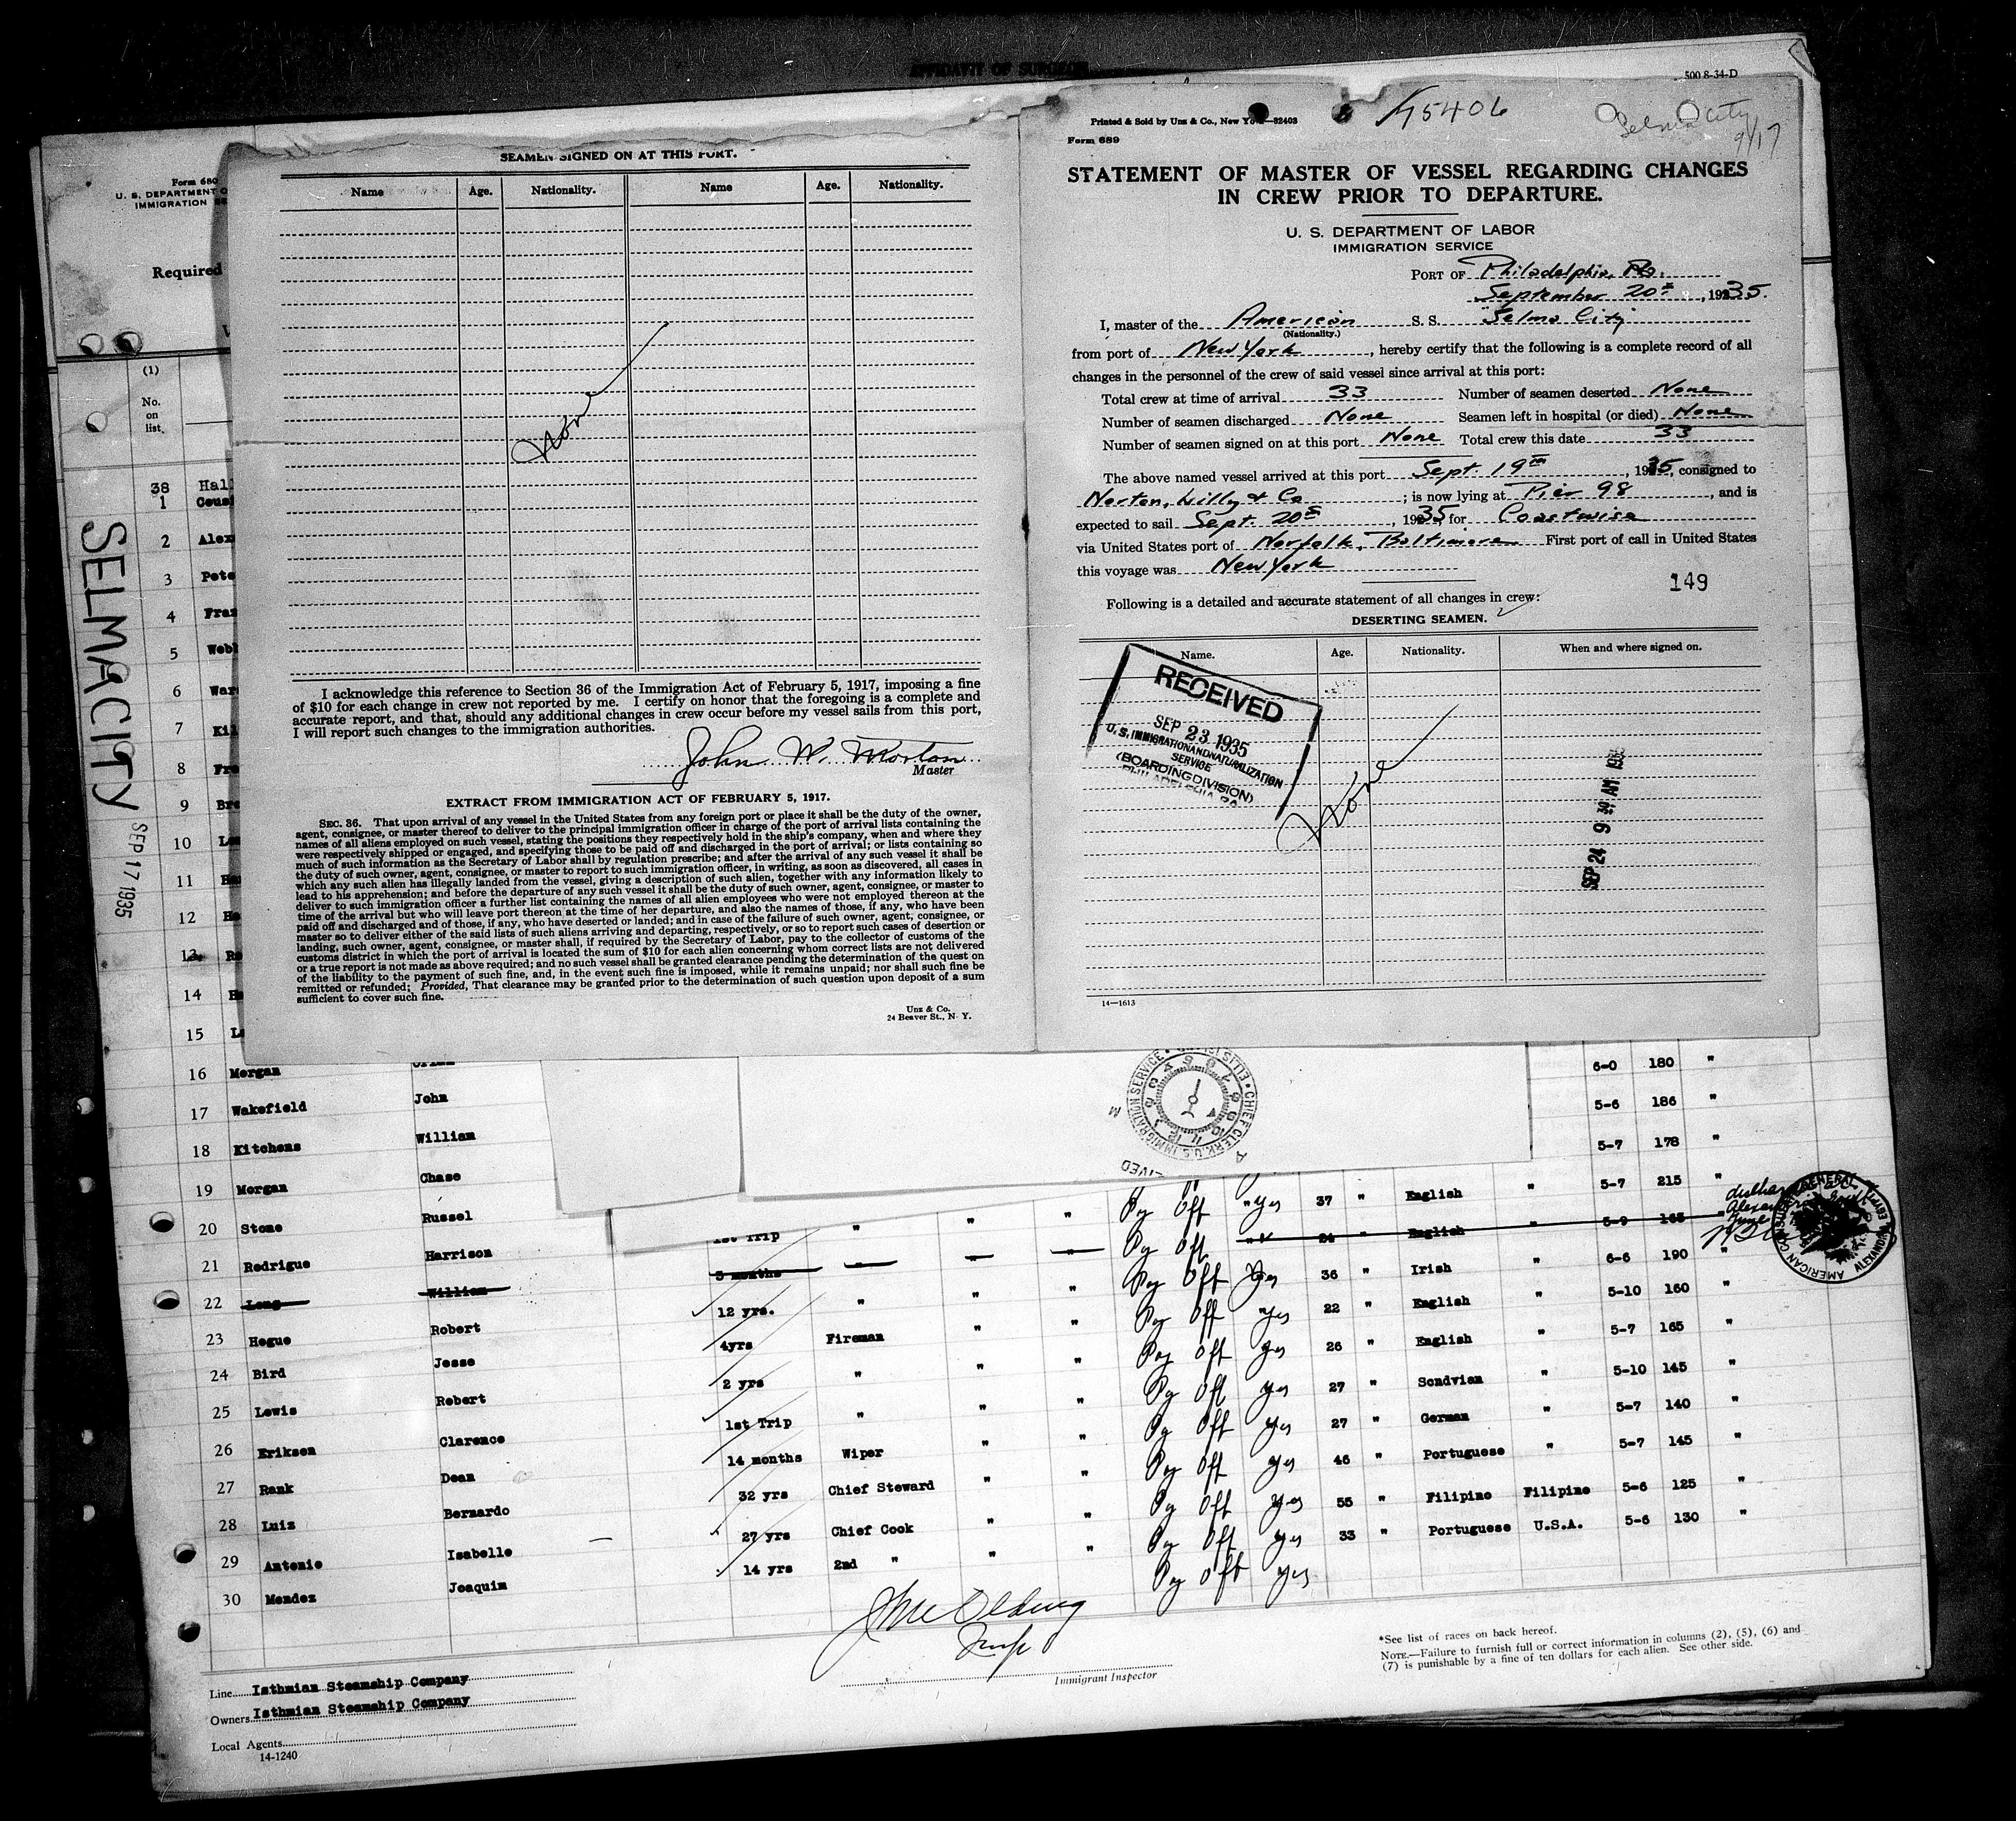 AFFIDAVIT OF SURGEON
500 8-34-D
Form 680
U. S. DEPARTMENT O
IMMIGRATION SE
Required
(1)
No.
on
list.
SELMACITY
SEP 17 1935
SEAMEN SIGNED ON AT THIS PORT.
Name Age. Nationality. Name Age. Nationality.
None
I acknowledge this reference to Section 36 of the Immigration Act of February 5, 1917, imposing a fine
of $10 for each change in crew not reported by me. I certify on honor that the foregoing is a complete and
accurate report, and that, should any additional changes in crew occur before my vessel sails from this port,
I will report such changes to the immigration authorities.
John W. Morton
Master
EXTRACT FROM IMMIGRATION ACT OF FEBRUARY 5, 1917.
SEC. 36. That upon arrival of any vessel in the United States from any foreign port or place it shall be the duty of the owner,
agent, consignee, or master thereof to deliver to the principal immigration officer in charge of the port of arrival lists containing the
names of all aliens employed on such vessel, stating the positions they respectively hold in the ship's company, when and where they
were respectively shipped or engaged, and specifying those to be paid off and discharged in the port of arrival; or lists containing so
much of such information as the Secretary of Labor shall by regulation prescribe; and after the arrival of any such vessel it shall be
the duty of such owner, agent, consignee, or master to report to such immigration officer, in writing, as soon as discovered, all cases in
which any such alien has illegally landed from the vessel, giving a description of such alien, together with any information likely to
lead to his apprehension; and before the departure of any such vessel it shall be the duty of such owner, agent, consignee, or master to
deliver to such immigration officer a further list containing the names of all alien employees who were not employed thereon at the
time of the arrival but who will leave port thereon at the time of her departure, and also the names of those, if any, who have been
paid off and discharged and of those, if any, who have deserted or landed; and in case of the failure of such owner, agent, consignee, or
master so to deliver either of the said lists of such aliens arriving and departing, respectively, or so to report such cases of desertion or
landing, such owner, agent, consignee, or master shall, if required by the Secretary of Labor, pay to the collector of customs of the
customs district in which the port of arrival is located the sum of $10 for each alien concerning whom correct lists are not delivered
or a true report is not made as above required; and no such vessel shall be granted clearance pending the determination of the quest on
of the liability to the payment of such fine, and, in the event such fine is imposed, while it remains unpaid; nor shall such fine be
remitted or refunded; Provided, That clearance may be granted prior to the determination of such question upon deposit of a sum
sufficient to cover such fine.
Unz & Co.
24 Beaver St., N. Y.
Printed & Sold by Unz & Co., New York—82403
Form 689
75406
Selma City
9/17
STATEMENT OF MASTER OF VESSEL REGARDING CHANGES
IN CREW PRIOR TO DEPARTURE.
U. S. DEPARTMENT OF LABOR
IMMIGRATION SERVICE
PORT OF Philadelphia, Pa.
September 20th, 1935.
I, master of the American S. S. Selma City
(Nationality.)
from port of New York, hereby certify that the following is a complete record of all
changes in the personnel of the crew of said vessel since arrival at this port:
Total crew at time of arrival 33 Number of seamen deserted None
Number of seamen discharged None Seamen left in hospital (or died) None
Number of seamen signed on at this port None Total crew this date 33
The above named vessel arrived at this port Sept. 19th, 1935, consigned to
Norton, Lilly & Co; is now lying at Pier 98, and is
expected to sail Sept. 20th, 1935, for Coastwise
via United States port of Norfolk, Baltimore First port of call in United States
this voyage was New York
149
Following is a detailed and accurate statement of all changes in crew:
DESERTING SEAMEN.
Name. Age. Nationality. When and where signed on.
RECEIVED
SEP 23 1935
U. S. IMMIGRATION AND NATURALIZATION
SERVICE
(BOARDING DIVISION)
PHILADELPHIA, PA.
None
SEP 24 9 AM 1935
14—1613
38 Hall
1 Cous
2 Alex
3 Pete
4 Fra
5 Web
6 War
7 Kil
8 Fre
9 Bre
10 Le
11 Ha
12 He
13 Re
14 Ha
15 Le
16 Morgan 6-0 180 "
17 Wakefield John 5-6 186 "
18 Kitchens William 5-7 178 "
19 Morgan Chase 5-7 215 "
20 Stone Russel 1st Trip " " " Pay Off " yes 37 " English "
21 Rodrigue Harrison 3 months " " " Pay Off " 24 " English " 5-9 165 "
22 Long William 12 yrs. " " " Pay Off yes 36 " Irish " 6-6 190 "
23 Hogue Robert 4yrs Fireman " " Pay Off yes 22 " English " 5-10 160 "
24 Bird Jesse 2 yrs " " " Pay Off yes 26 " English " 5-7 165 "
25 Lewis Robert 1st Trip " " " Pay Off yes 27 " Scndvian " 5-10 145 "
26 Eriksen Clarence 14 months Wiper " " Pay Off yes 27 " German " 5-7 140 "
27 Rank Dean 32 yrs Chief Steward " " Pay Off yes 46 " Portuguese " 5-7 145 "
28 Luiz Bernardo 27 yrs Chief Cook " " Pay Off yes 55 " Filipino Filipino 5-6 125 "
29 Antonio Isabelle 14 yrs 2nd " " " Pay Off yes 33 " Portuguese U.S.A. 5-6 130 "
30 Mendez Joaquim Pay Off yes
CHIEF CLERK U.S. IMMIGRATION SERVICE • ELLIS ISL
AMERICAN CONSULATE GENERAL
ALEXANDRIA, EGYPT
Line Isthmian Steamship Company
Owners Isthmian Steamship Company
Local Agents
14-1240
Immigrant Inspector
*See list of races on back hereof.
NOTE.—Failure to furnish full or correct information in columns (2), (5), (6) and
(7) is punishable by a fine of ten dollars for each alien. See other side.